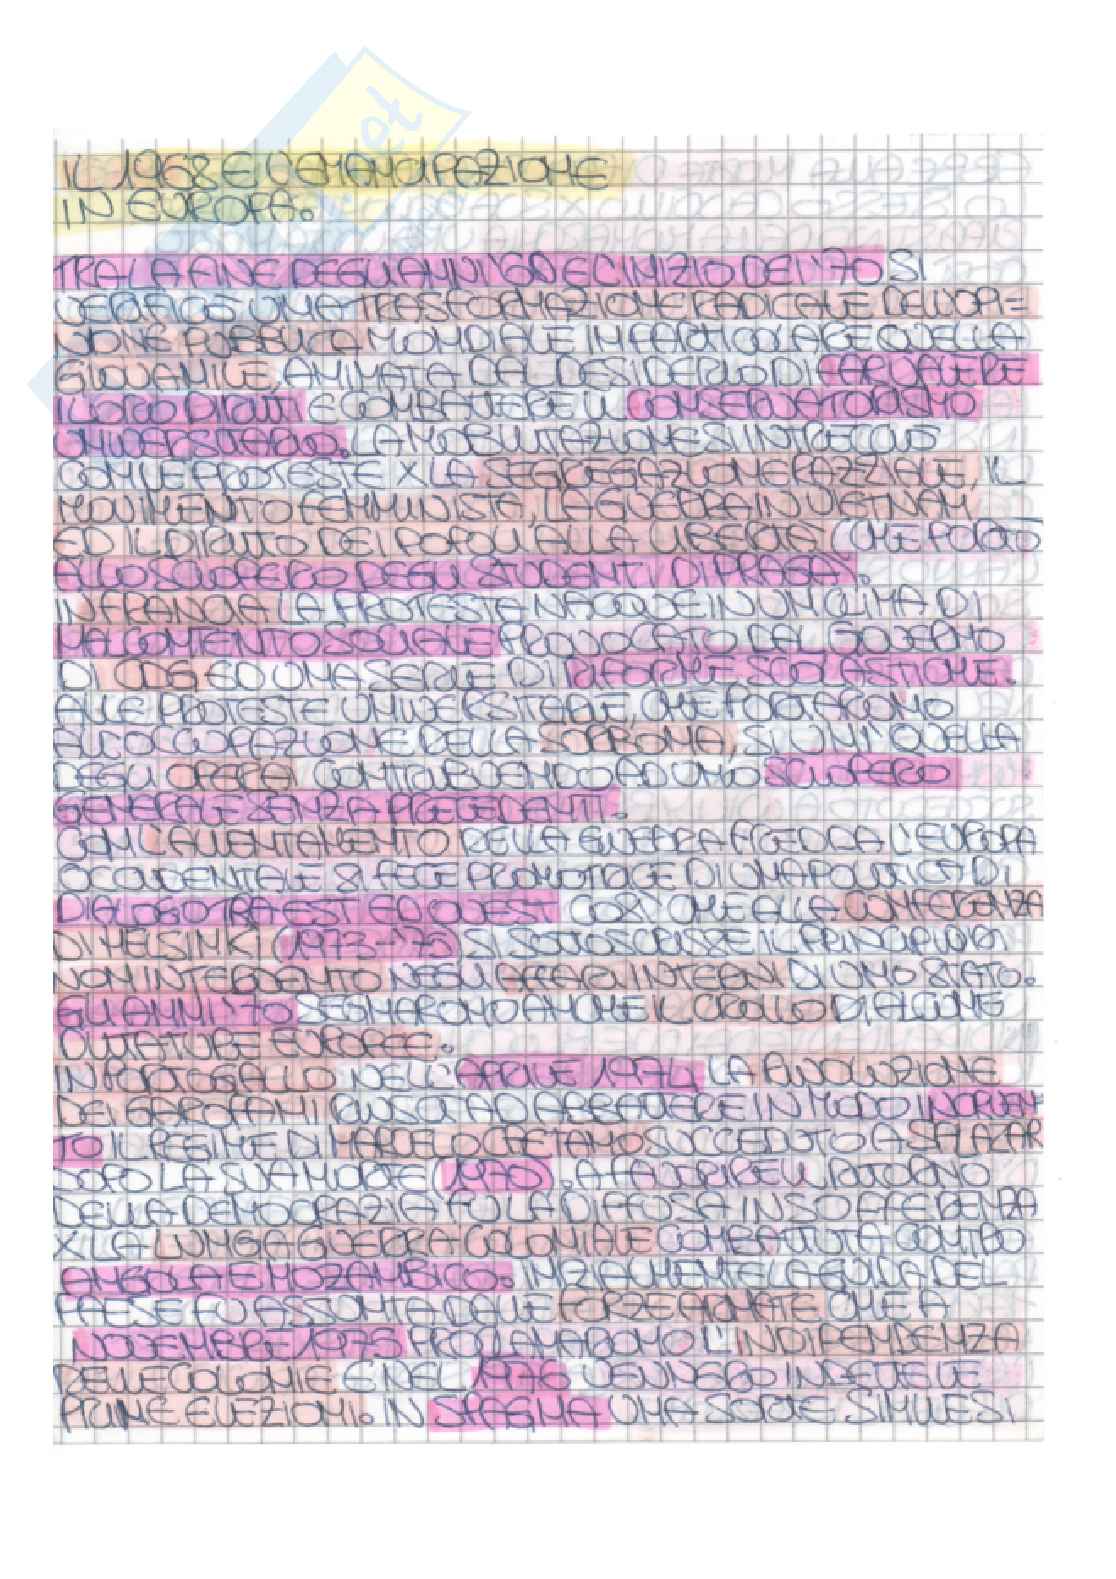 IL 1968 E L'EMANCIPAZIONE
IN EUROPA.
TRA LA FINE DEGLI ANNI '60 E L'INIZIO DEI '70 SI
VERIFICÒ UNA TRASFORMAZIONE RADICALE DELL'OPI=
NIONE PUBBLICA MONDIALE IN PARTICOLARE QUELLA
GIOVANILE, ANIMATA DAL DESIDERIO DI FAR VALERE
I LORO DIRITTI E COMBATTERE IL CONSERVATORISMO
UNIVERSITARIO. LA MOBILITAZIONE SI INTRECCIÒ
CON LE PROTESTE X LA SEGREGAZIONE RAZZIALE, IL
MOVIMENTO FEMMINISTA, LA GUERRA IN VIETNAM
ED IL DIRITTO DEI POPOLI ALLA LIBERTÀ (CHE PORTÒ
ALLO SCIOPERO DEGLI STUDENTI DI PRAGA).
IN FRANCIA LA PROTESTA NACQUE IN UN CLIMA DI
MALCONTENTO SOCIALE PROVOCATO DAL GOVERNO
DI CDG ED UNA SERIE DI RIFORME SCOLASTICHE.
ALLE PROTESTE UNIVERSITARIE, CHE PORTARONO
ALL'OCCUPAZIONE DELLA SORBONA, SI UNÌ QUELLA
DEGLI OPERAI CONTRIBUENDO AD UNO SCIOPERO
GENERALE SENZA PRECEDENTI.
CON L'ALLENTAMENTO DELLA GUERRA FREDDA L'EUROPA
OCCIDENTALE SI FECE PROMOTRICE DI UNA POLITICA DI
DIALOGO TRA EST ED OVEST COSÌ CHE ALLA CONFERENZA
DI HELSINKI (1973-'75) SI SOTTOSCRISSE IL PRINCIPIO DI
NON INTERVENTO NEGLI AFFARI INTERNI DI UNO STATO.
GLI ANNI '70 SEGNARONO ANCHE IL CROLLO DI ALCUNE
DITTATURE EUROPEE.
IN PORTOGALLO NELL'APRILE 1974, LA RIVOLUZIONE
DEI GAROFANI RIUSCÌ AD ABBATTERE IN MODO INCRUEN
TO IL REGIME DI MARCELO CAETANO SUCCEDUTO A SALAZAR
DOPO LA SUA MORTE (1970). A FAVORIRE IL RITORNO
DELLA DEMOCRAZIA FU LA DIFFUSA INSOFFERENZA
X LA LUNGA GUERRA COLONIALE COMBATTUTA CONTRO
ANGOLA E MOZAMBICO. INIZIALMENTE LA GUIDA DEL
PAESE FU ASSUNTA DALLE FORZE ARMATE CHE A
NOVEMBRE 1975 PROCLAMARONO L'INDIPENDENZA
DELLE COLONIE E NEL 1976 VENNERO INDETTE LE
PRIME ELEZIONI. IN SPAGNA UNA SORTE SIMILE SI